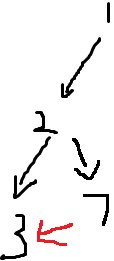 1
2
3 7